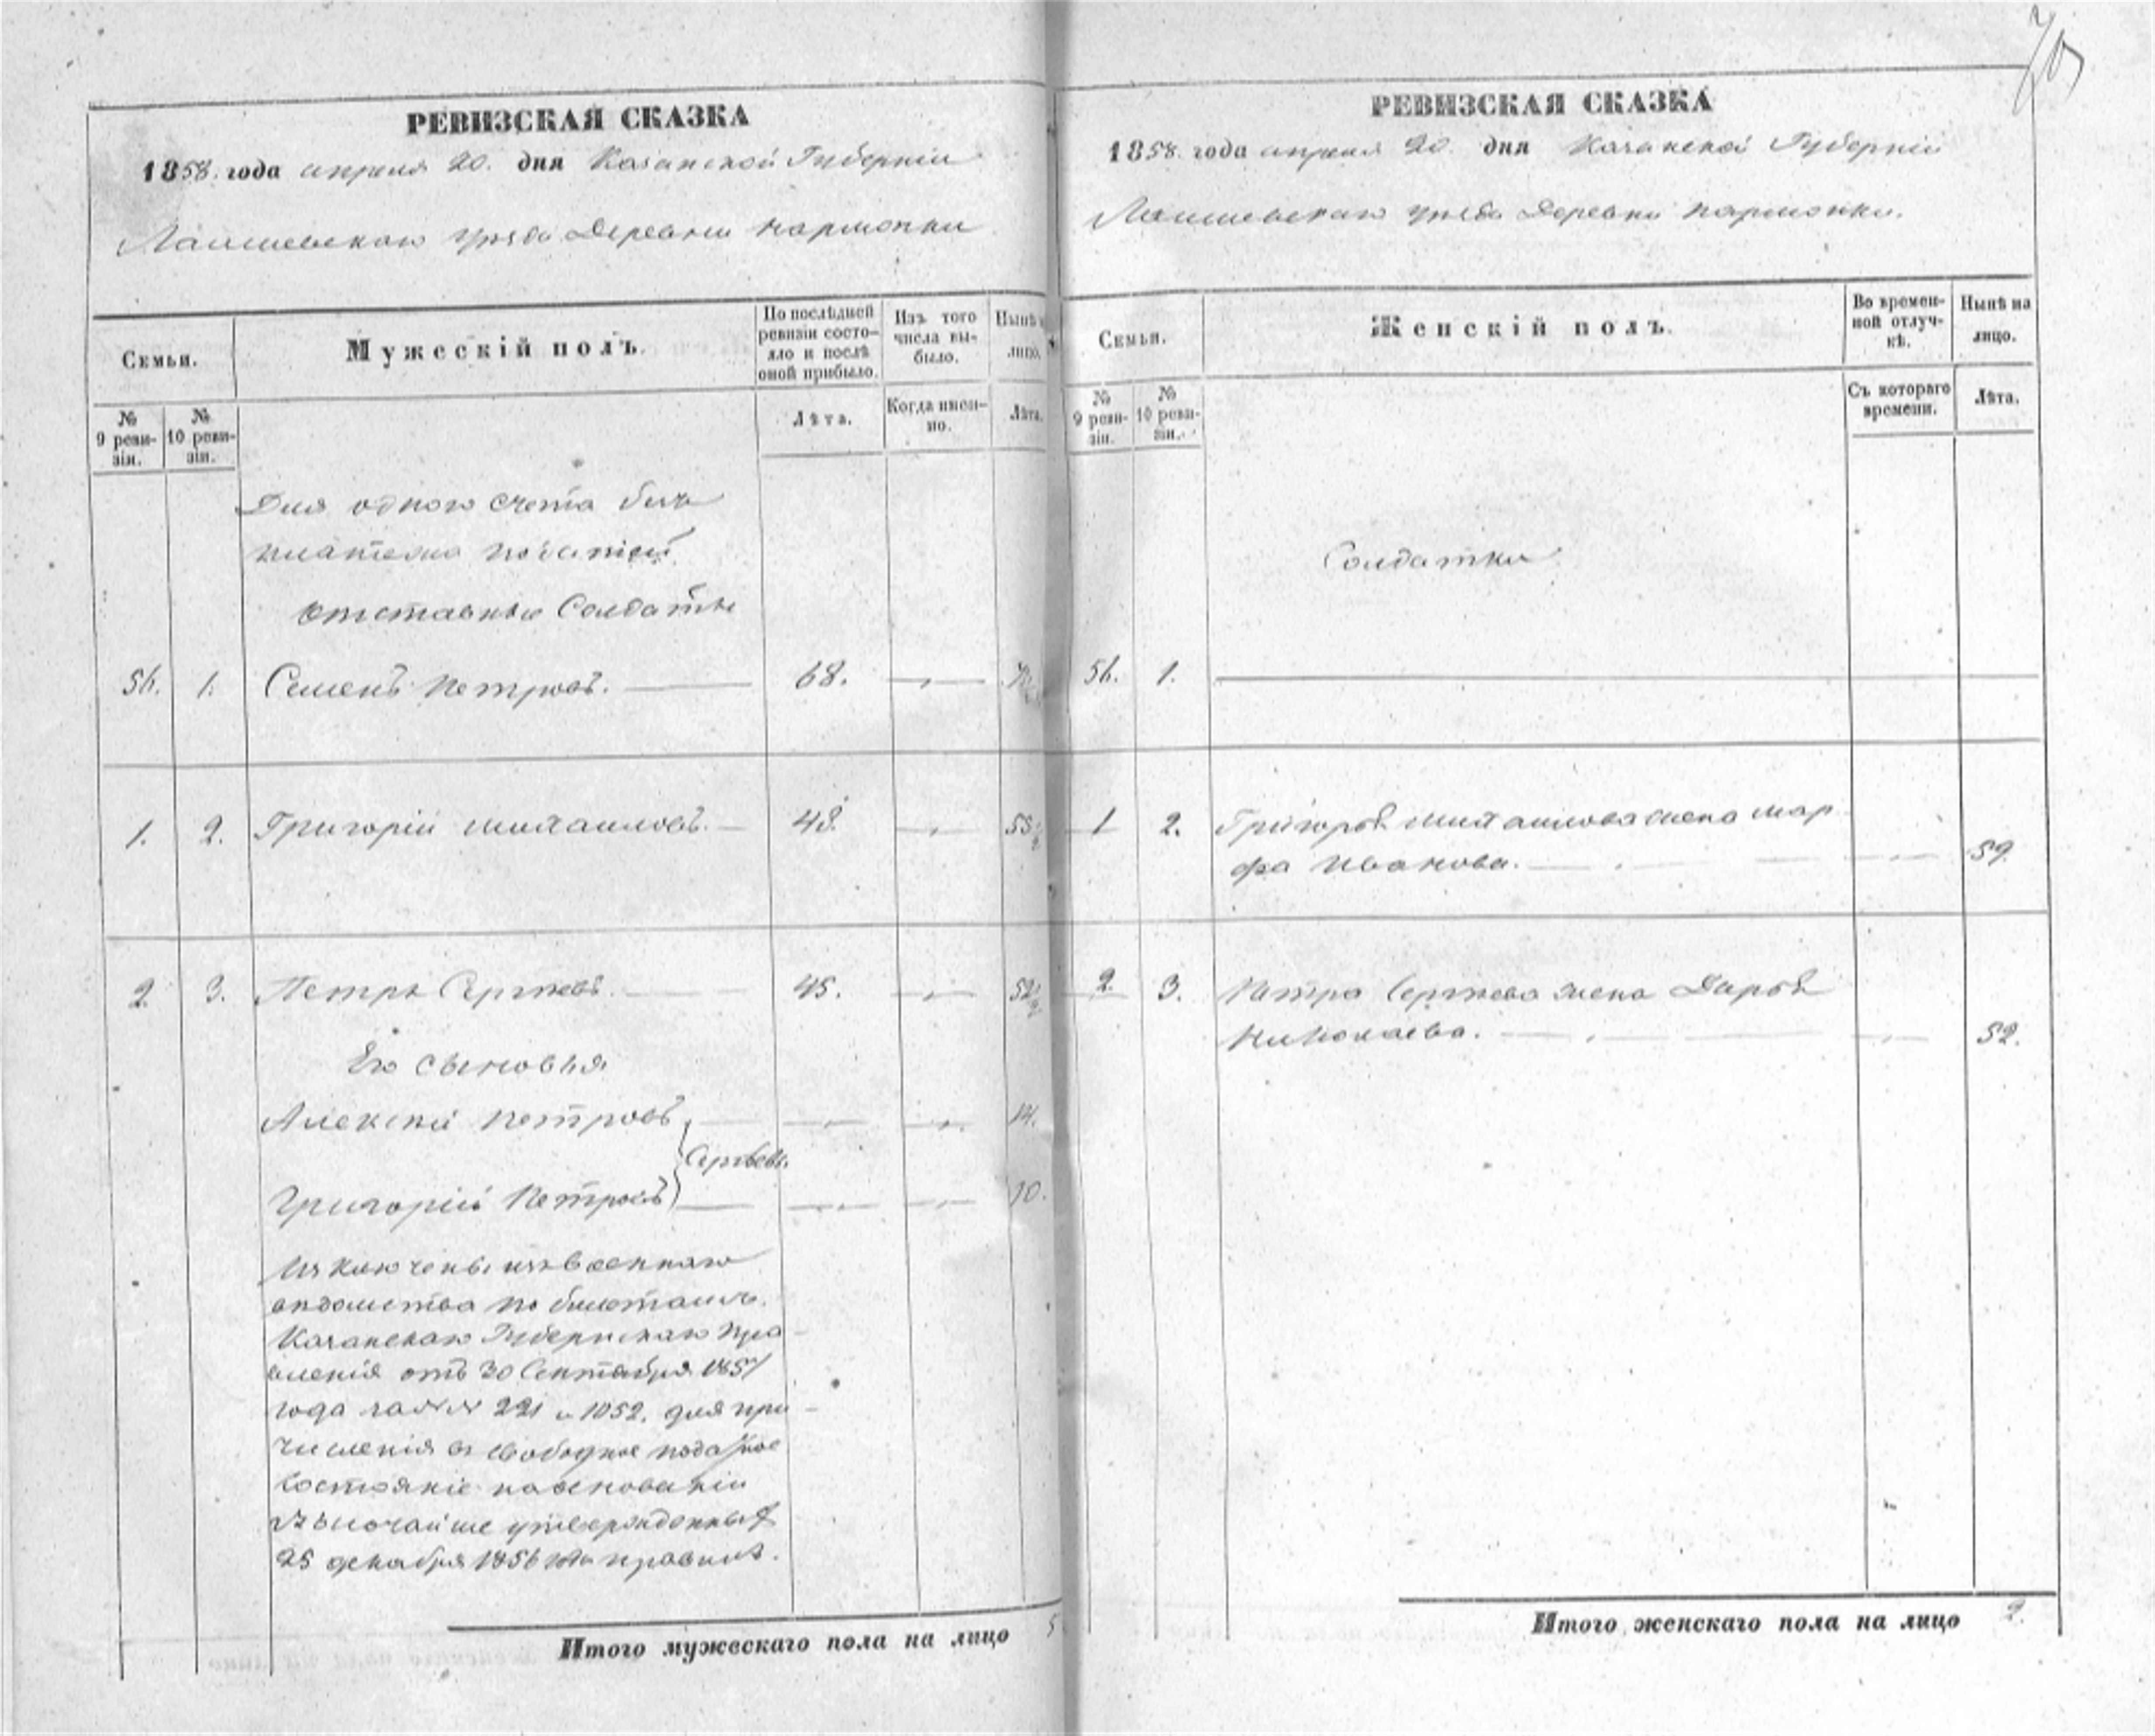 РЕВИЗСКАЯ СКАЗКА
1858. года апреля 20. дня Казанской Губерніи
Лаишевскаго уѣзда Деревни Нармонки
Семьи.
Мужескій полъ.
По послѣдней ревизіи состояло и послѣ оной прибыло.
Изъ того числа выбыло.
Нынѣ лицо.
№ 9 ревизіи.
№ 10 ревизіи.
Лѣта.
Когда именно.
Лѣта.
Для одного счета безъ
платежа податей
Отставные Солдаты
56. 1. Семенъ Петровъ. 68.
1. 2. Григорій Михаиловъ. 48.
2 3. Петръ Сергѣевъ. 45. 52
Его сыновья
Алексѣй Петровъ 14.
Сергѣевы.
Григорій Петровъ 10.
Изключены изъ военнаго
вѣдомства по билетамъ
Казанскаго Губернскаго Пра-
вленія отъ 30 Сентября 1857
года за №№ 221 и 1052. для при-
численія въ свободное податное
состояніе на основаніи
Высочайше утвержденныхъ
25 декабря 1856 года правилъ.
Итого мужескаго пола на лицо 5
70
РЕВИЗСКАЯ СКАЗКА
1858. года апреля 20. дня Казанской Губерніи
Лаишевскаго уѣзда Деревни Нармонки.
Семьи.
Женскій полъ.
Во временной отлучкѣ.
Нынѣ на лицо.
№ 9 ревизіи.
№ 10 ревизіи.
Съ котораго времени.
Лѣта.
Солдатки
56. 1.
1 2. Григорья Михаилова жена Мар-
фа Иванова. 59.
2. 3. Петра Сергѣева жена Дарья
Николаева. 52.
Итого женскаго пола на лицо 2.